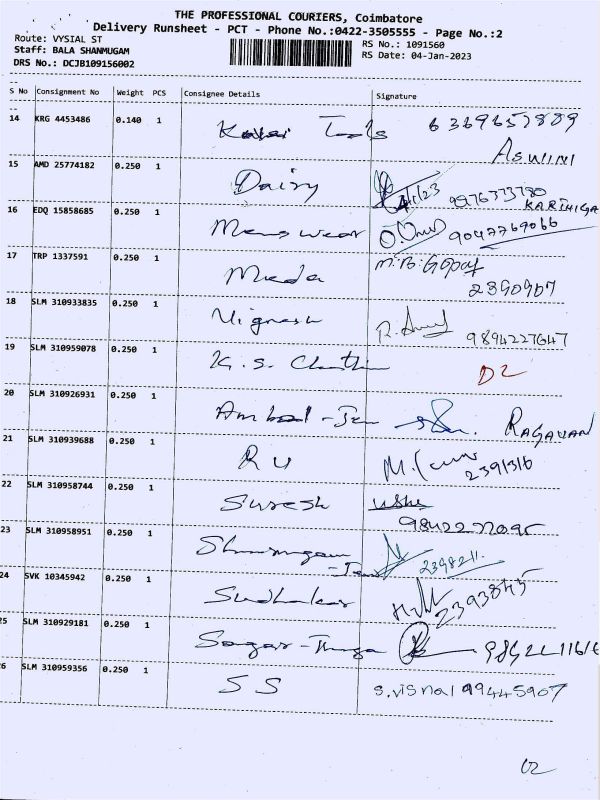 THE PROFESSIONAL COURIERS, Coimbatore
Delivery Runsheet - PCT - Phone No.:0422-3505555 - Page No.:2
Route: VYSIAL ST
Staff: BALA SHANMUGAM
DRS No.: DCJB109156002
RS No.: 1091560
RS Date: 04-Jan-2023
S No Consignment No Weight PCS Consignee Details Signature
14 KRG 4453486 0.140 1 Tools 6369657889
ASWINI
15 AMD 25774182 0.250 1 Dairy
KARTHIGA
16 EDQ 15858685 0.250 1 Mens wear 9042769066
17 TRP 1337591 0.250 1 M.B. Gopal
2390907
18 SLM 310933835 0.250 1 Vignesh 9894227647
19 SLM 310959078 0.250 1 K. S. D2
20 SLM 310926931 0.250 1 Ambal - RAGAVAN
21 SLM 310939688 0.250 1 R U M.
2391316
22 SLM 310958744 0.250 1 Suresh Usha
23 SLM 310958951 0.250 1 Shanmugam 2398211.
24 SVK 10345942 0.250 1 Sudhakar 2393845
25 SLM 310929181 0.250 1 Sagar -
26 SLM 310959356 0.250 1 S S S.Visnal 99445907
02